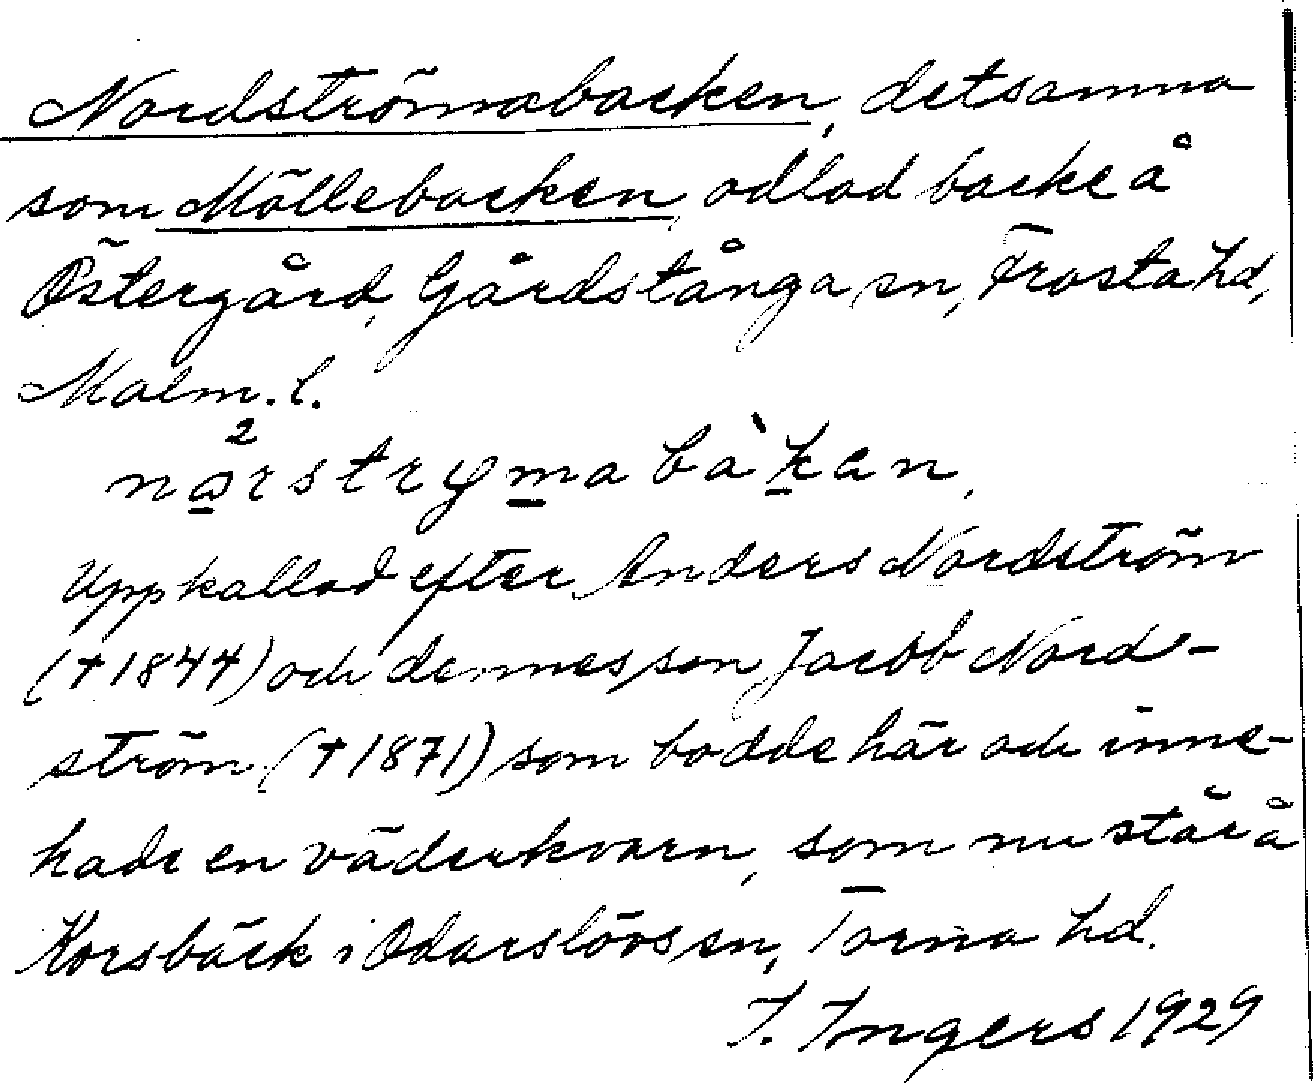 Nordströmabacken, detsamma
som Möllebacken, odlad backe å
Östergård, Gårdstånga sn, Frosta hd,
Malm. l.
nårstryma bàkan,
Uppkallad efter Anders Nordström
(†1844) och dennes son Jacob Nord-
ström (†1871) som bodde här och inne-
hade en väderkvarn, som nu står å
Korsbäck i Odarslövs sn, Torna hd.
I. Ingers 1929